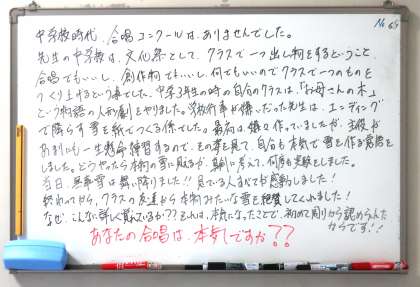 No 69
中学校時代、合唱コンクールは、ありませんでした。
先生の中学校は、文化祭として、クラスで一つ出し物をするということ。
合唱でもいいし、創作物でもいいし、何でもいいのでクラスで一つのものを
つくり上げるという事でした。中学3年生の時の自分のクラスは、「お母さんの木」
という物語の人形劇をやりました。学校行事が嫌いだった先生は、エンディング
で降らす雪を紙でつくる係でした。最初は、嫌々作っていましたが、主役が
あまりにも一生懸命練習するので、その姿を見て、自分も本気で雪を作る覚悟を
しました。どうやったら本物の雪に見えるか、真剣に考えて、何度も実験をしました。
当日、無事雪は舞い降りました!!見ている人まですごく感動しました!
終わってから、クラスの友達から本物みたいな雪を絶賛してくれました!
なぜ、こんなに詳しく覚えているか??それは、本気になったことで、初めて周りから認められた
からです!!
あなたの合唱は、本気ですか??